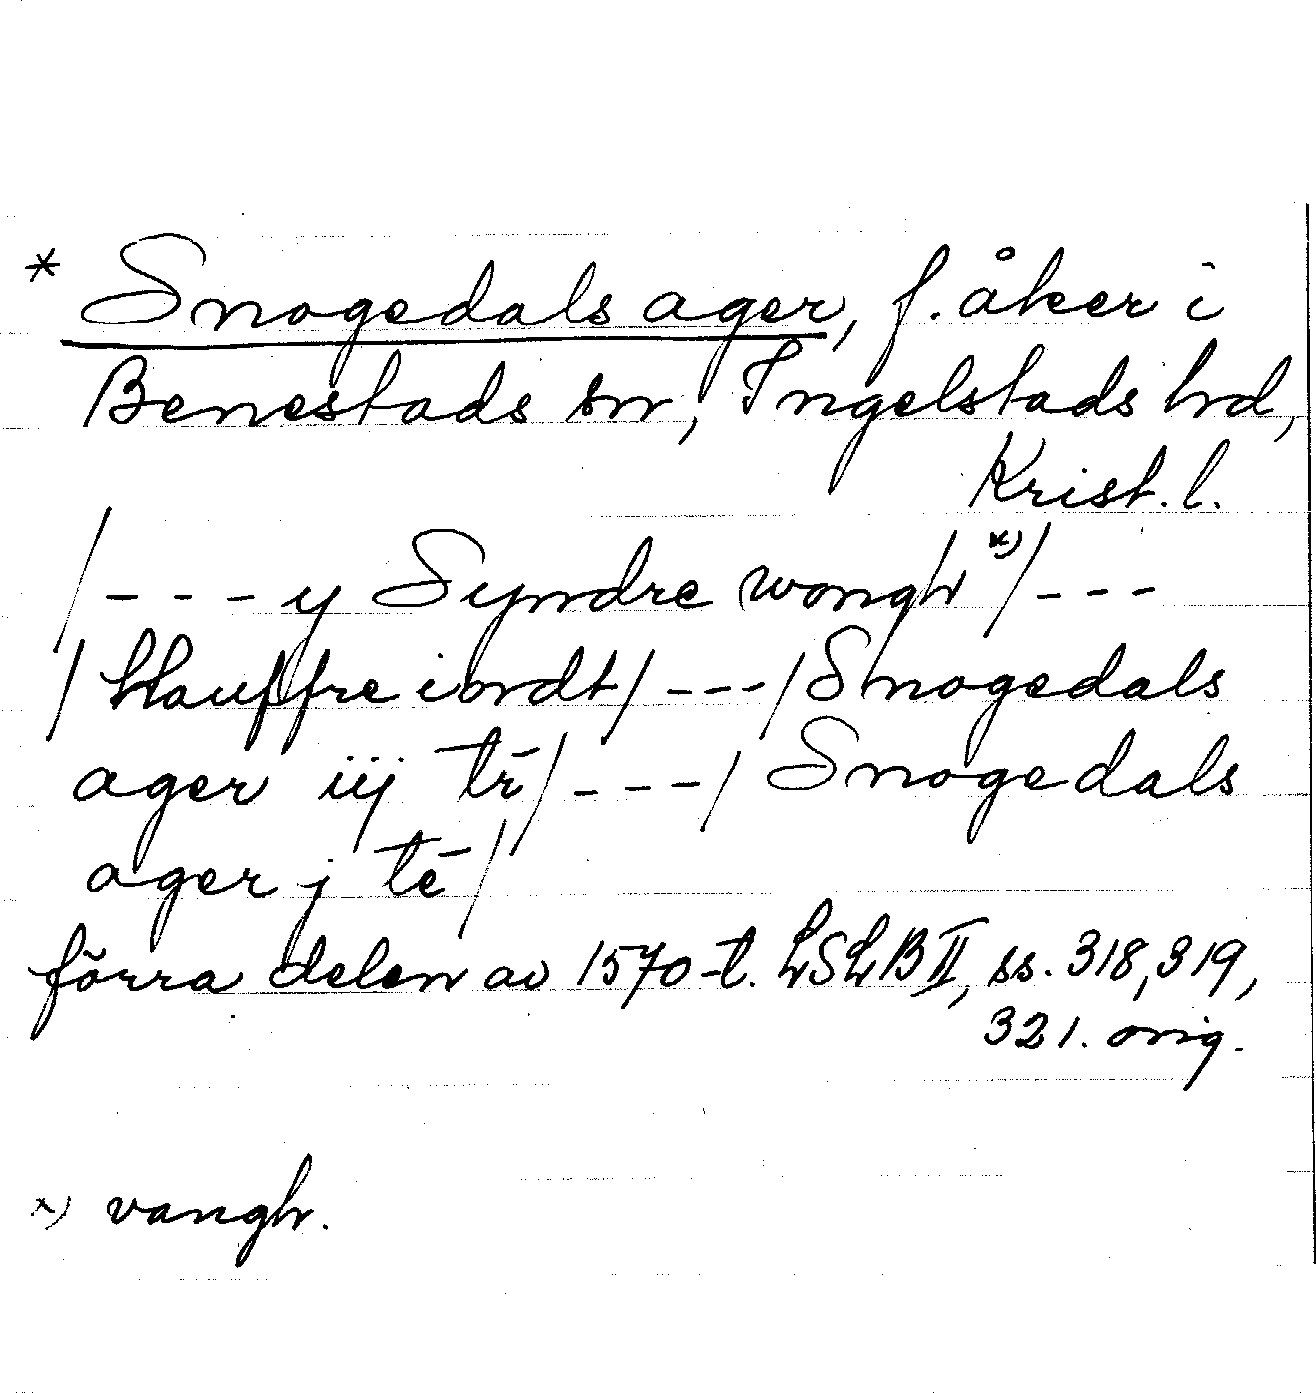 * Snogedals ager, f. åker i
Benestads sn, Ingelstads hd,
Krist. l.
/ - - - y Syndre wongh x) / - - -
/ Hauffre iordt / - - - / Snogedals
ager iij tr̄ / - - - / Snogedals
ager j tē /
förra delen av 1570-t. LSLB II, ss. 318, 319,
321. orig.
x) vangh.